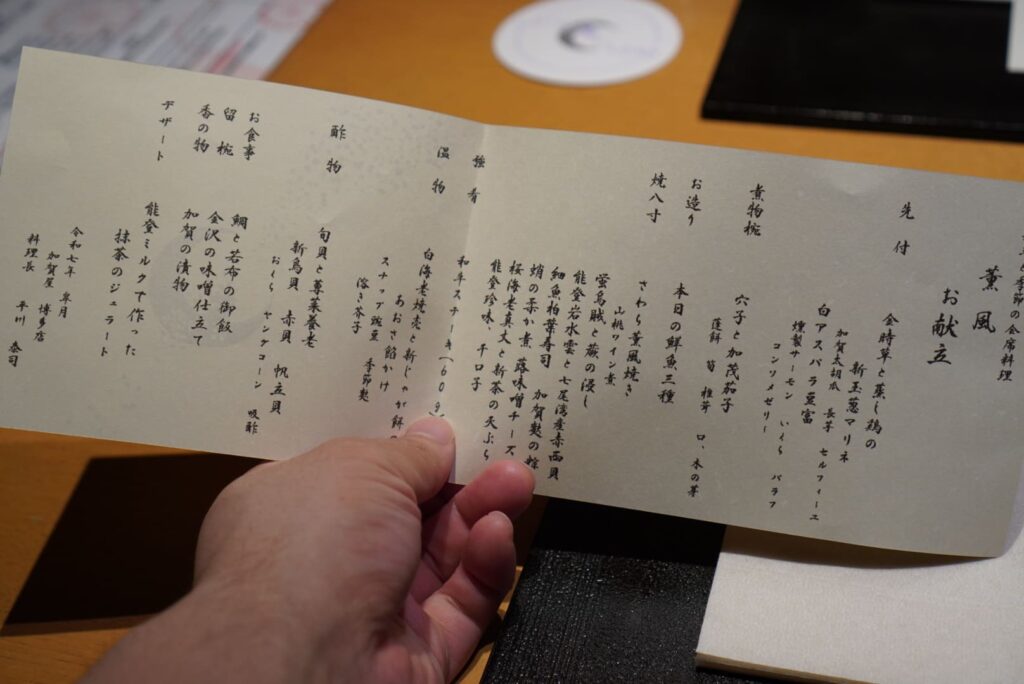 の季節の会席料理
薫風
お献立
先付
金時草と蒸し鶏の
新玉葱マリネ
加賀太胡瓜 長芋 セルフィーユ
白アスパラ豆富
燻製サーモン いくら バラフ
コンソメゼリー
煮物椀
穴子と加茂茄子
蓮餅 筍 椎茸 口、木の芽
お造り
本日の鮮魚三種
焼八寸
さわら薫風焼き
山桃ワイン煮
蛍烏賊と蕨の浸し
能登岩水雲と七尾湾産赤西貝
細魚柏葉寿司 加賀麩の粽
蛸の柔か煮 蕗味噌チーズ
桜海老真丈と新茶の天ぷら
能登珍味・干口子
強肴
和牛ステーキ(60g)
温物
白海老焼売と新じゃが餅の
あおさ餡かけ
スナップ豌豆 季節麩
溶き芥子
酢物
旬貝と蓴菜養老
新鳥貝 赤貝 帆立貝
おくら ヤングコーン 吸酢
お食事
鯛と若布の御飯
留椀
金沢の味噌仕立て
香の物
加賀の漬物
デザート
能登ミルクで作った
抹茶のジェラート
令和七年 皐月
加賀屋 博多店
料理長 平川 泰司